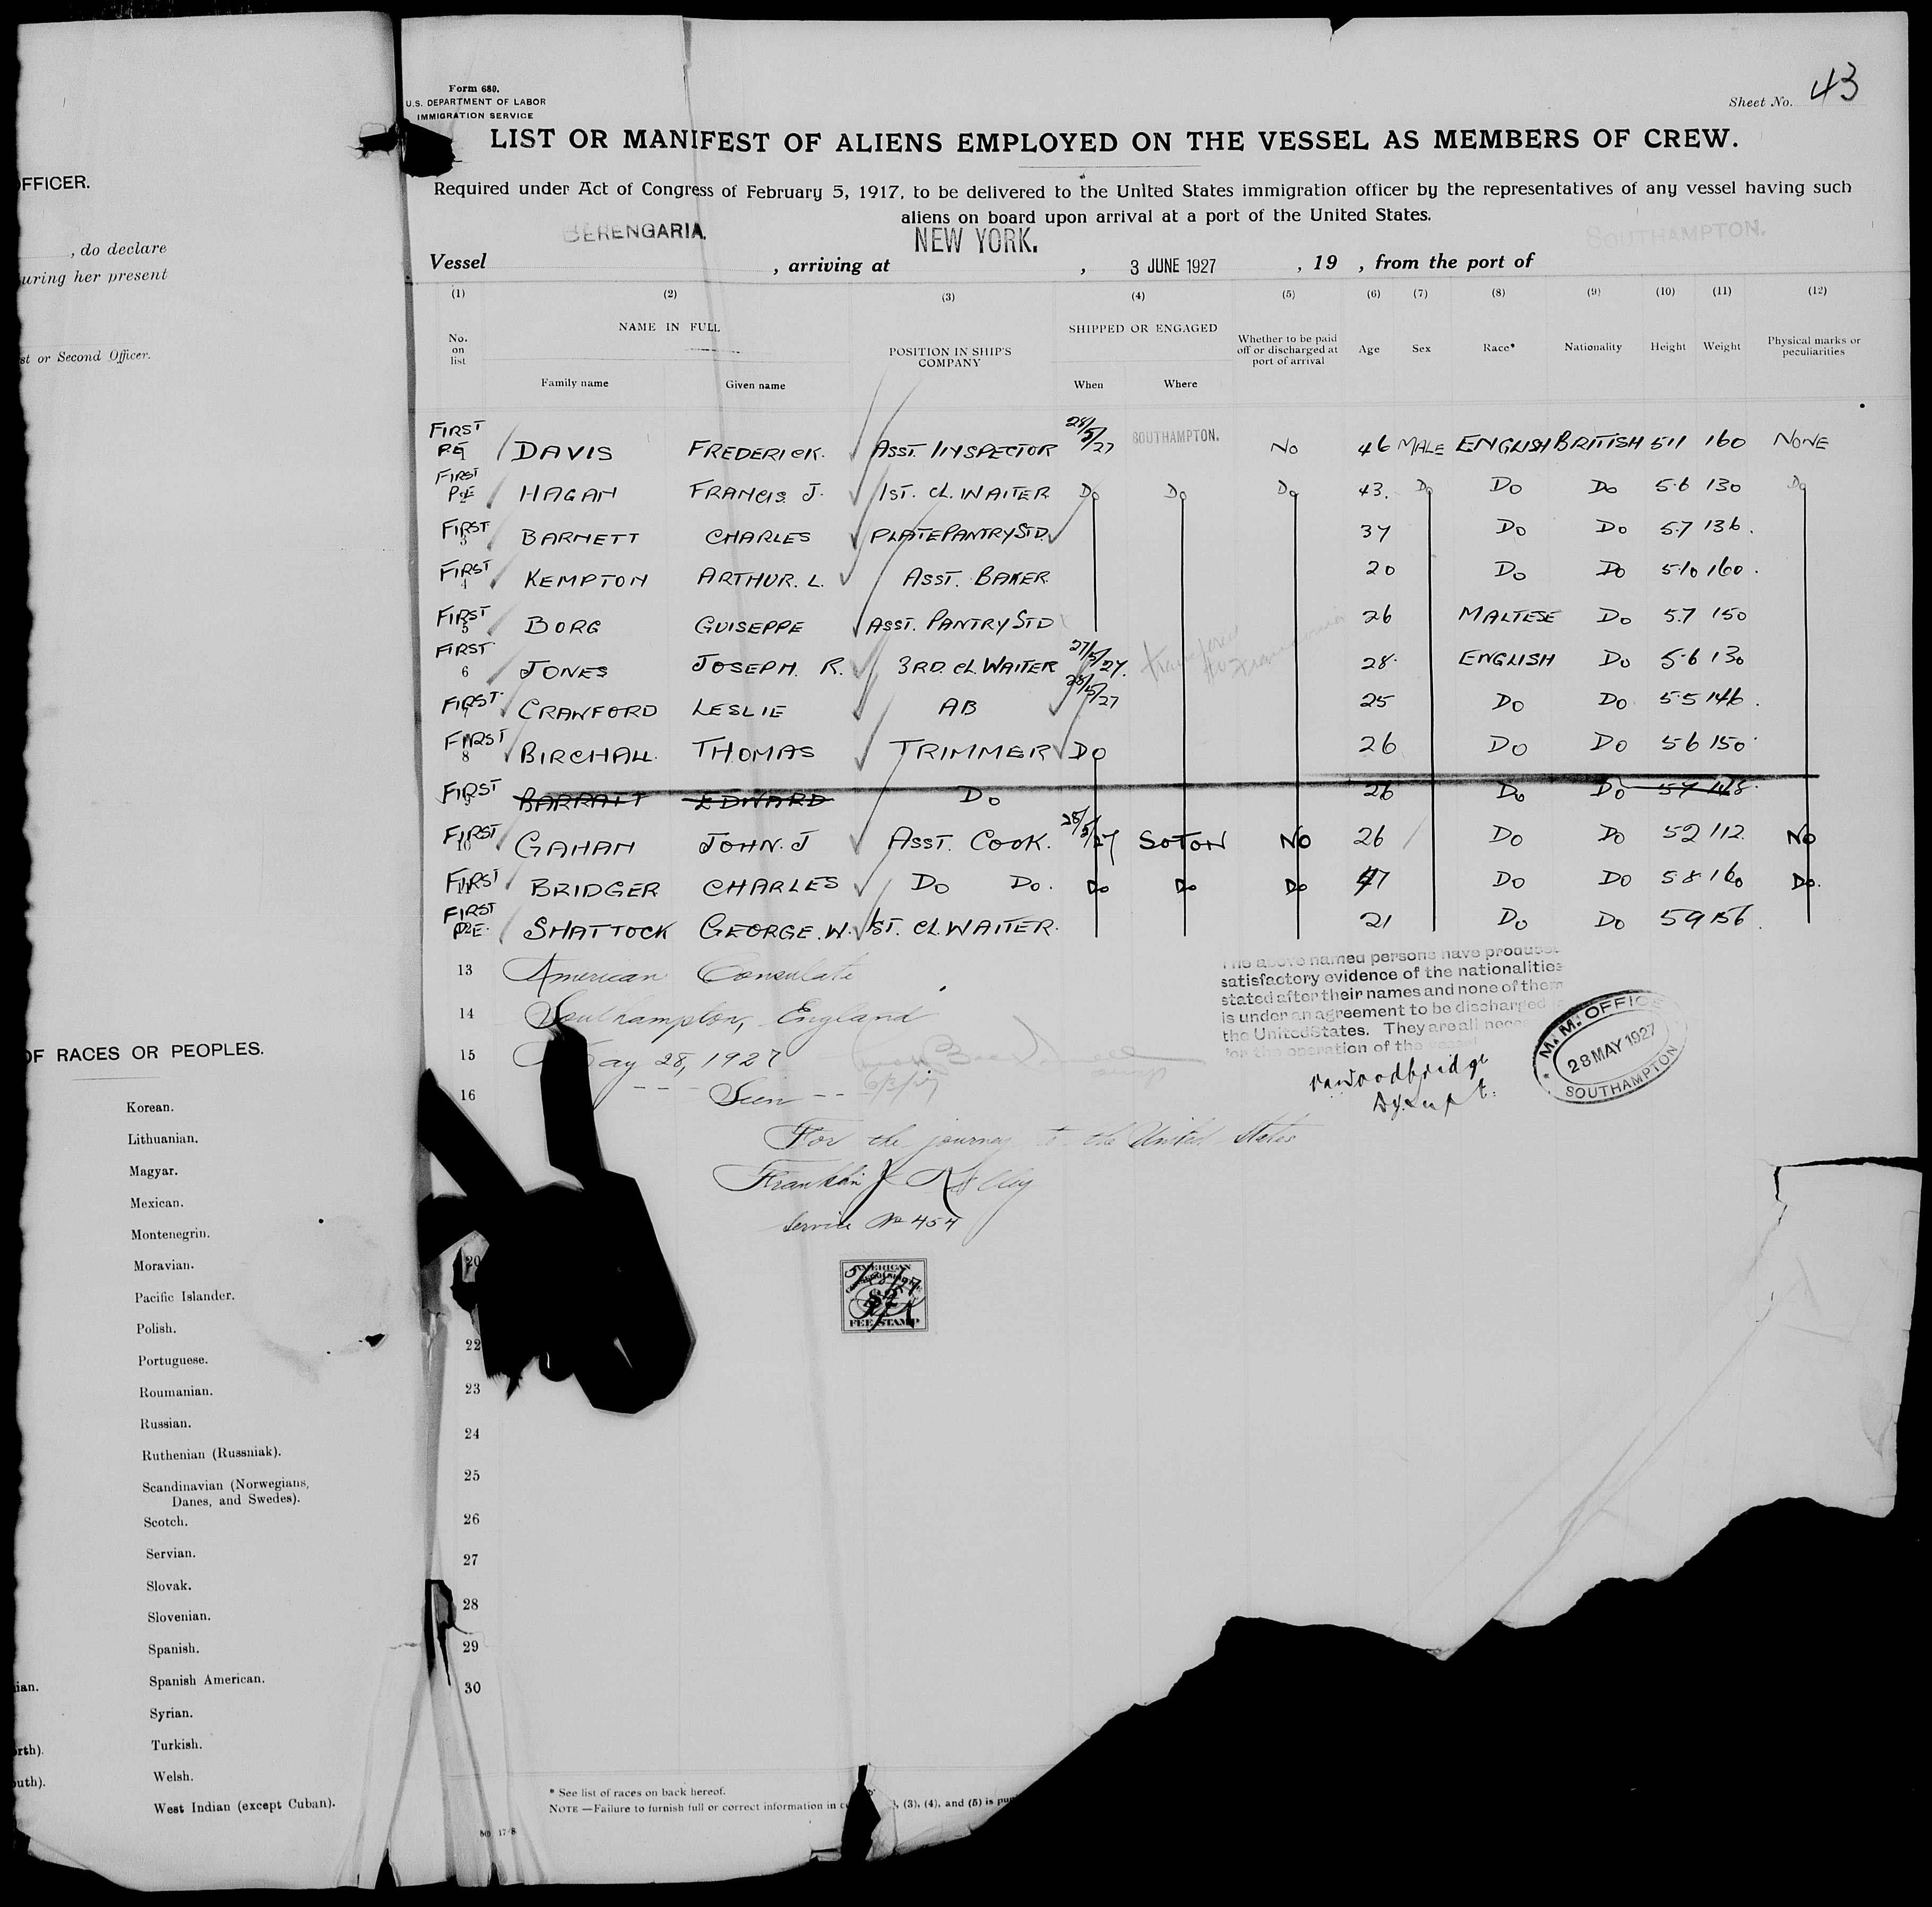 FFICER.
, do declare
uring her present
st or Second Officer.
OF RACES OR PEOPLES.
Korean.
Lithuanian.
Magyar.
Mexican.
Montenegrin.
Moravian.
Pacific Islander.
Polish.
Portuguese.
Roumanian.
Russian.
Ruthenian (Russniak).
Scandinavian (Norwegians,
Danes, and Swedes).
Scotch.
Servian.
Slovak.
Slovenian.
Spanish.
ian. Spanish American.
Syrian.
rth). Turkish.
outh). Welsh.
West Indian (except Cuban).
Form 680.
U.S. DEPARTMENT OF LABOR
IMMIGRATION SERVICE
Sheet No. 43
LIST OR MANIFEST OF ALIENS EMPLOYED ON THE VESSEL AS MEMBERS OF CREW.
Required under Act of Congress of February 5, 1917, to be delivered to the United States immigration officer by the representatives of any vessel having such
aliens on board upon arrival at a port of the United States.
Vessel BERENGARIA. , arriving at NEW YORK. , 3 JUNE 1927 , 19 , from the port of SOUTHAMPTON.
(1) (2) (3) (4) (5) (6) (7) (8) (9) (10) (11) (12)
No. on list NAME IN FULL Family name Given name POSITION IN SHIP'S COMPANY SHIPPED OR ENGAGED When Where Whether to be paid off or discharged at port of arrival Age Sex Race* Nationality Height Weight Physical marks or peculiarities
FIRST P.E 1 DAVIS FREDERICK. ASST. INSPECTOR 28/5/27 SOUTHAMPTON. NO 46 MALE ENGLISH BRITISH 511 160 NONE
FIRST P.E 2 HAGAN FRANCIS J. 1ST. CL. WAITER DO DO DO 43. DO DO DO 5.6 130 DO
FIRST 3 BARNETT CHARLES PLATE PANTRY STD. 37 DO DO 5.7 136.
FIRST 4 KEMPTON ARTHUR. L. ASST. BAKER 20 DO DO 5.10 160.
FIRST 5 BORG GUISEPPE ASST. PANTRY STD 26 MALTESE DO 5.7 150
FIRST 6 JONES JOSEPH. R. 3RD. CL. WAITER 27/5/27. 28. ENGLISH DO 5.6 130
FIRST. 7 CRAWFORD LESLIE AB 28/5/27 25 DO DO 5.5 146.
FIRST 8 BIRCHALL. THOMAS TRIMMER DO 26 DO DO 5.6 150
FIRST 9 BARRATT EDWARD DO 26 DO DO 57 148.
FIRST 10 GAHAN JOHN. J ASST. COOK. 28/5/27 SOTON NO 26 DO DO 52 112. NO
FIRST 11 BRIDGER CHARLES DO DO. DO DO DO 47 DO DO 58 160 DO.
FIRST P.E. 12 SHATTOCK GEORGE. W. 1ST. CL. WAITER. 21 DO DO 59 156.
transfered to
13 American Consulate
14 Southampton, England
15 May 28, 1927
16 Seen
6/3/27
For the journey to the United States
Franklin Kelley
Service No 454
The above named persons have produced
satisfactory evidence of the nationalities
stated after their names and none of them
is under an agreement to be discharged in
the United States. They are all nece
for the operation of the vessel
Woodbridge
Dy. Supt.
M.M. OFFICE
28 MAY 1927
SOUTHAMPTON
AMERICAN
5/28/27
$2
FEE STAMP
20
22
23
24
25
26
27
28
29
30
* See list of races on back hereof.
NOTE —Failure to furnish full or correct information in co , (3), (4), and (5) is pun